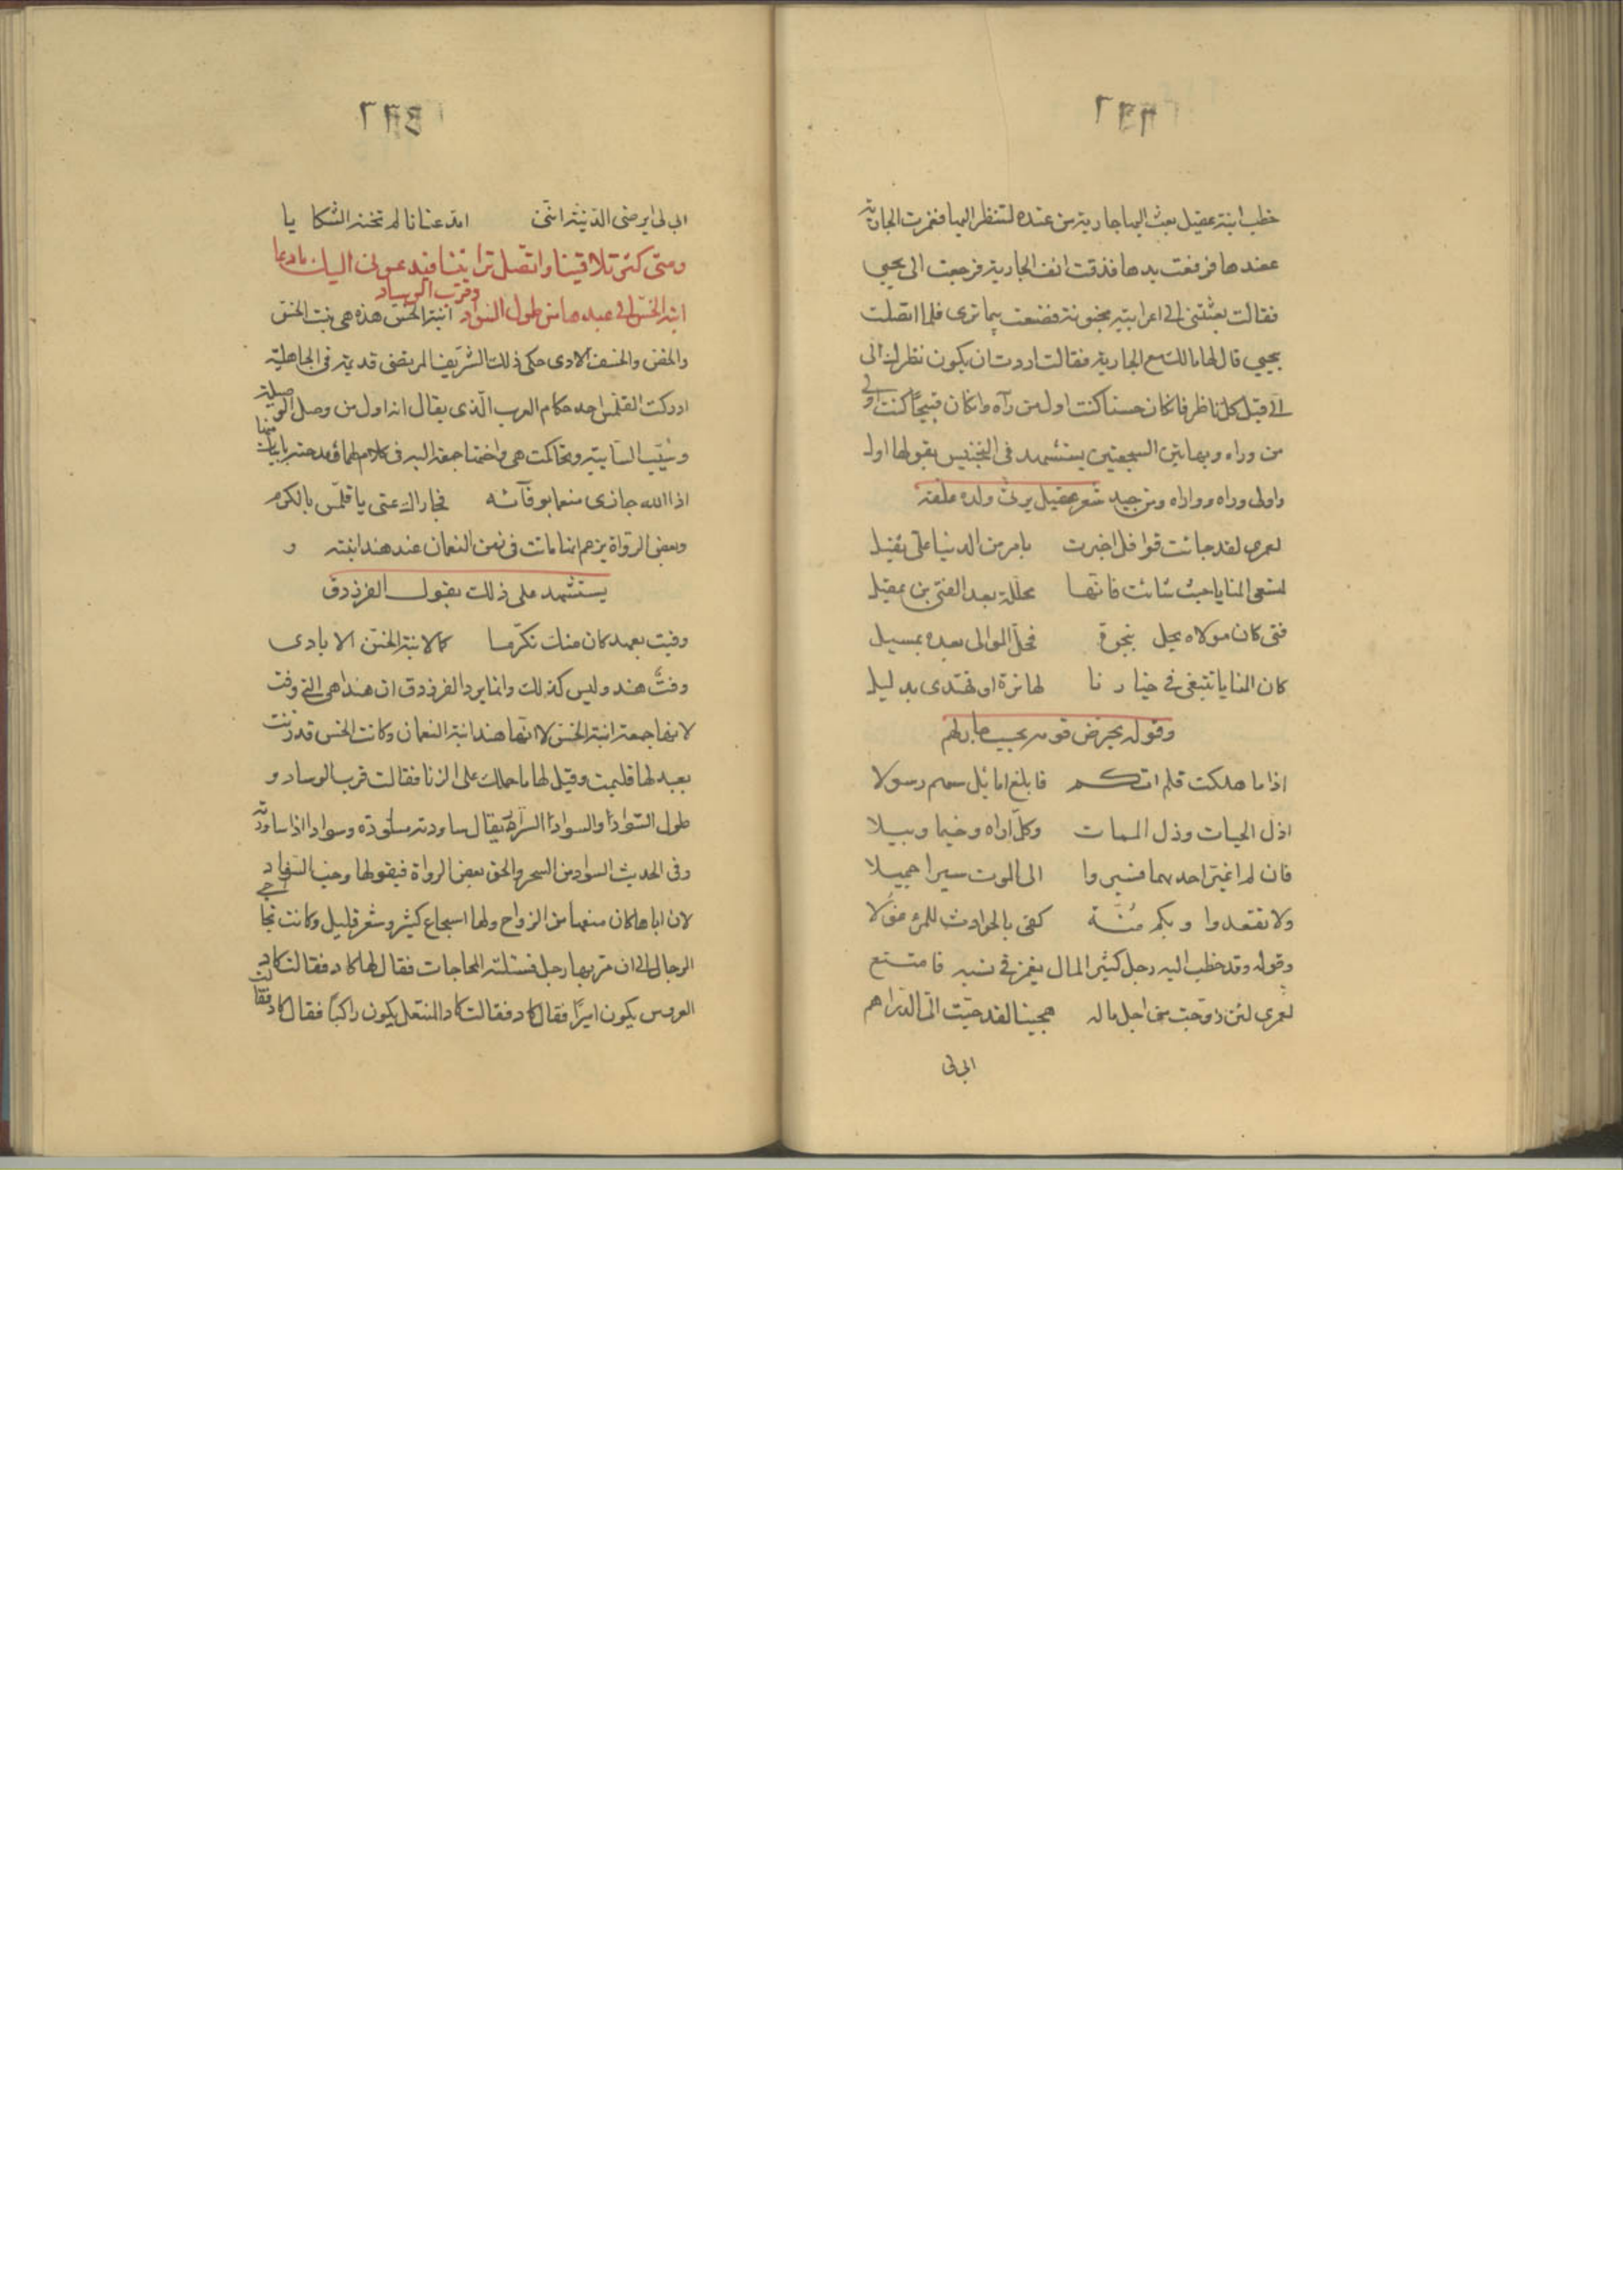 ٢٣٣
خطب ابنة عقيل بعث اليها جارية من عنده لتنظر اليها فغمزت الجارية
عضدها فرفعت يدها فدقت انف الجارية فرجعت الى يحيى
فقالت بعثتنى الى اعرابية مجنونة فصنعت بى ما ترى فلما اتصلت
بيحيى قال لها مالك مع الجارية فقالت اردت ان يكون نظرك الى
الى قبل كل ناظر فان كان حسنا كنت اول من رآه وان كان قبيحا كنت اولى
من وراه وبهاتين السجعتين يستشهد فى التجنيس بقولها اول
واولى وراه وواراه ومن جيد شعر عقيل يرثى ولده علقة
لعمرى لقد جائت قوافل اخبرت بامر من الدنيا على ثقيل
لتسعى المنايا حيث شائت فانها محللة بعد الفتى بن عقيل
فتى كان مولاه يحل بنجوة فحل الموالى بعده بمسيل
كان المنايا تبتغى فى خيارنا لها ترة او تهتدى بدليل
وقوله يحرض قومه
اذا ما هلكت فلم اتكم فابلغ اماثل سهم رسولا
اذل الحيات وذل الممات وكل اراه وخيما وبيلا
فان لم غير احديهما فسيروا الى الموت سيرا جميلا
ولا تقعدوا وبكم منة كفى بالحوادث للمرء غولا
وقوله وقد خطب اليه رجل كثير المال يغمز فى نسبه فامتنع
لعمرى لئن زوجت من اجل ماله هجينا لقد حبت الى الدراهم
ابى لى
٢٣٤
ابى لى ان يرضى الدنية اننى امد عنانا لم تخنه الشكايا
ومتى كثر تلاقينا واتصل ترائينا فيدعونى اليك ما دعا
ابنة الخس الى عبدها من طول السواد وقرب الوساد ابنة الخس هذه هى بنت الخس
والخص والخسف الايادى حكى ذلك الشريف المرتضى قديمة فى الجاهلية
ادركت القلمس احد حكام العرب الذى يقال انه اول من وصل الوصيلة
وسيب السائبة وتحاكمت هى واختها جمعة اليه فى كلام لهما ومدحته بابيات منها
اذا الله جازى منعما بوفائه فجازاك عنى يا قلمس بالكرم
وبعض الرواة يزعم انها ماتت فى زمن النعمان عند هند ابنته و
يستشهد على ذلك بقول الفرزدق
وفيت بعهد كان منك تكرما كما لابنة الخس الايادى
وفت هند وليس كذلك وانما يريد الفرزدق ان هندا هى التى وفت
لاختها جمعة ابنة الخس لا انها هند ابنة النعمان وكانت الخس قد زنت
بعبد لها فليمت وقيل لها ما حملك على الزنا فقالت قرب الوساد و
طول السواد والسواد السرار يقال ساودته مساودة وسوادا اذا ساررته
وفى الحديث السواد من السحر والحق بعض الرواة فى قولها وحب السفاد
لان اباها كان منعها من الزواج ولها اسجاع كثير وشعر قليل وكانت تحاجى
الرجال الى ان مر بها رجل فسئلته المحاجات فقال لها كاد فقالت كاد
العروس يكون اميرا فقال كاد فقالت كاد المنتعل يكون راكبا فقال كاد فقالت